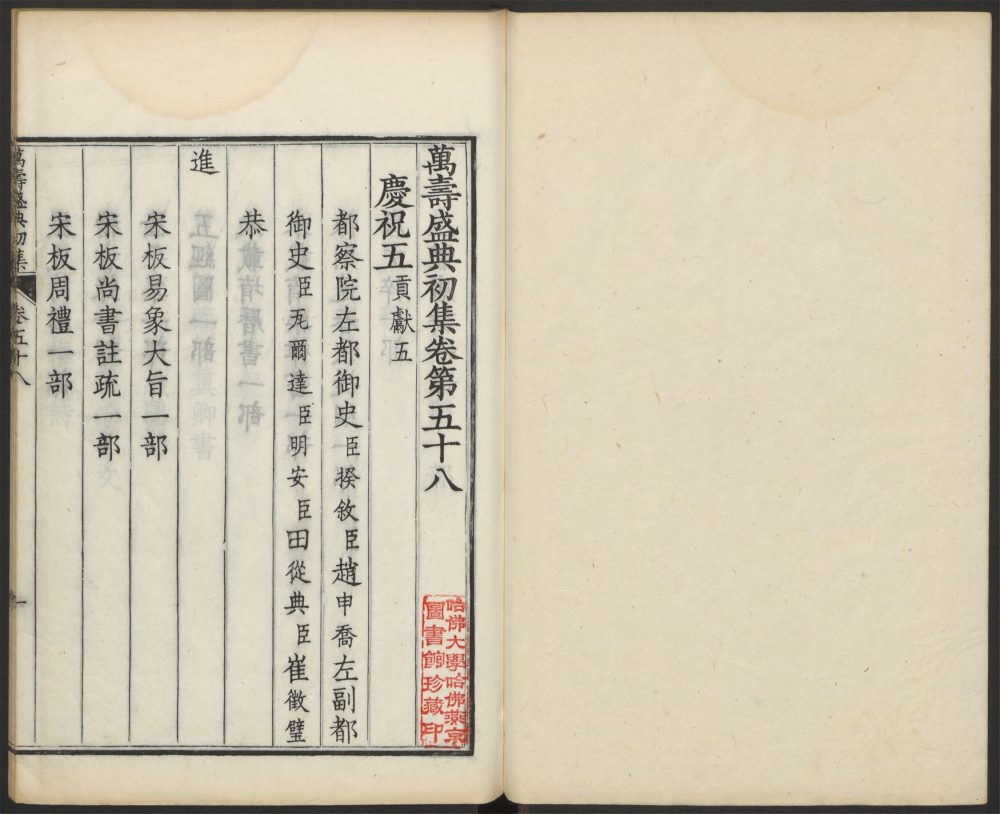 萬壽盛典初集卷第五十八
慶祝五貢獻五
都察院左都御史臣揆敘臣趙申喬左副都
御史臣瓦爾達臣明安臣田從典臣崔徵璧
恭
進
宋板易象大旨一部
宋板尚書註疏一部
宋板周禮一部
萬壽盛典初集 卷五十八 一
哈佛大學哈佛燕京
圖書館珍藏印